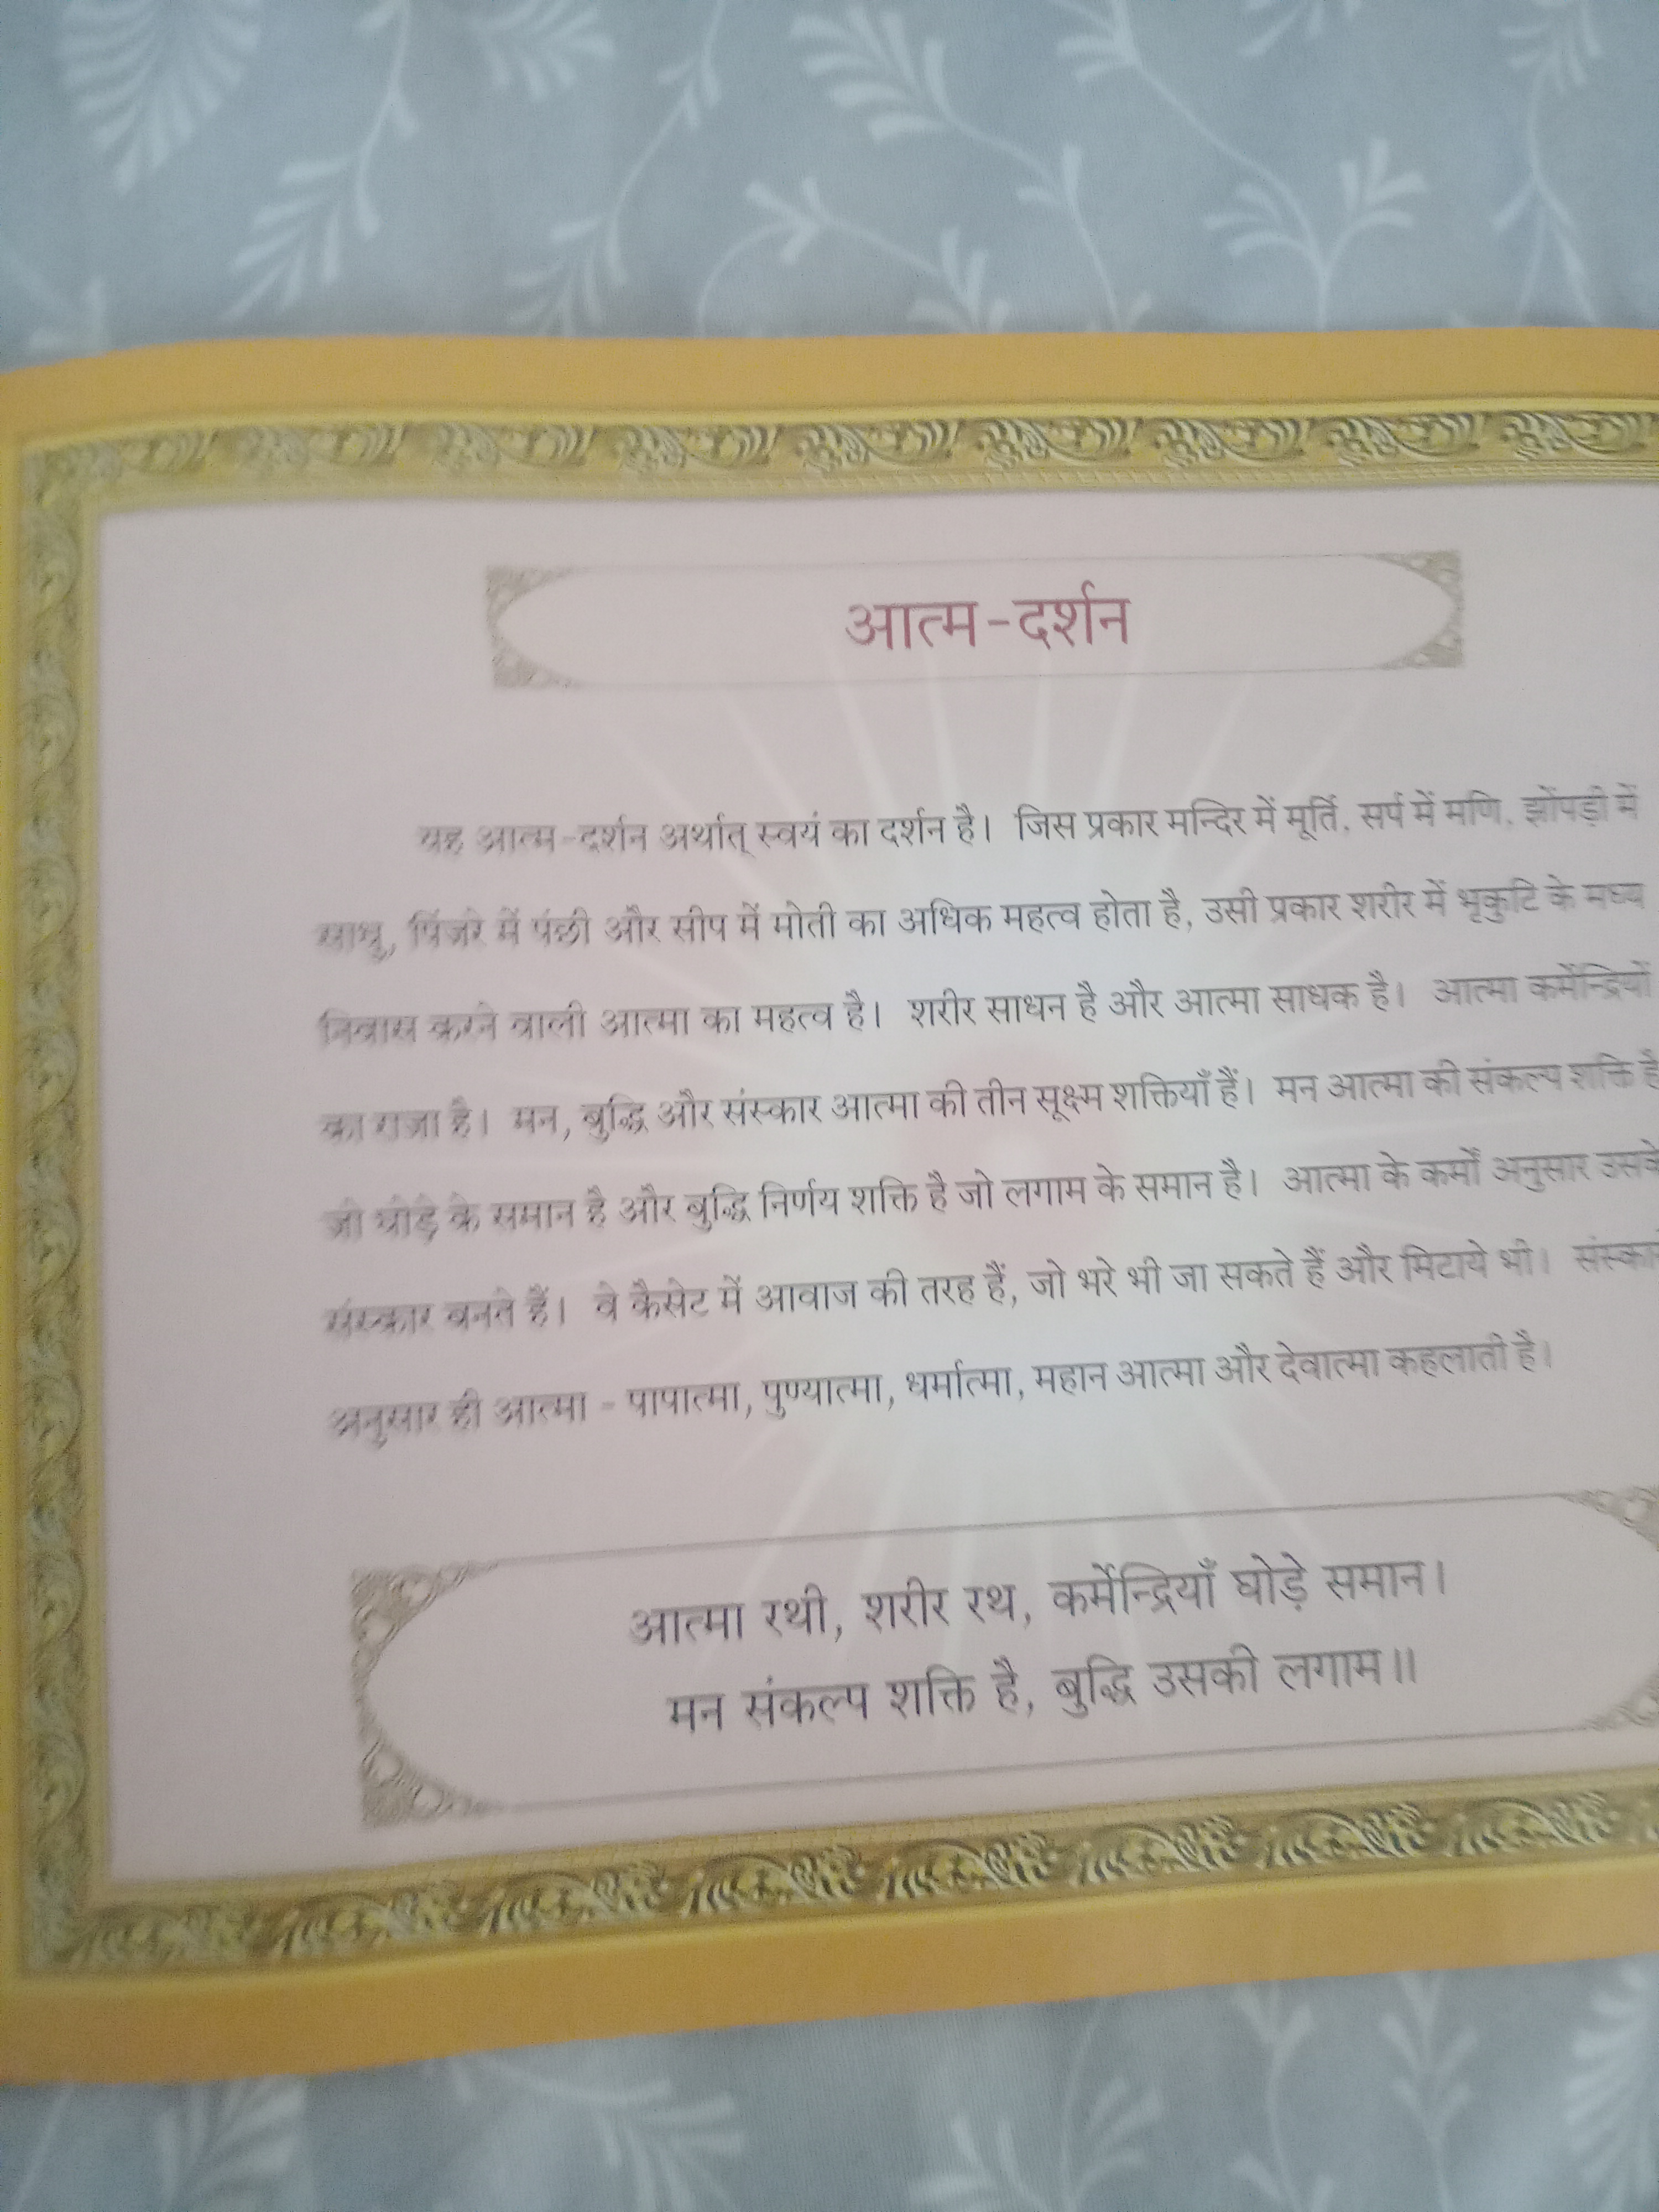 आत्म-दर्शन
यह आत्म-दर्शन अर्थात् स्वयं का दर्शन है। जिस प्रकार मन्दिर में मूर्ति, सर्प में मणि, झोंपड़ी में
साधु, पिंजरे में पंछी और सीप में मोती का अधिक महत्व होता है, उसी प्रकार शरीर में भृकुटि के मध्य
निवास करने वाली आत्मा का महत्व है। शरीर साधन है और आत्मा साधक है। आत्मा कर्मेन्द्रियों
का राजा है। मन, बुद्धि और संस्कार आत्मा की तीन सूक्ष्म शक्तियाँ हैं। मन आत्मा की संकल्प शक्ति है
जो घोड़े के समान है और बुद्धि निर्णय शक्ति है जो लगाम के समान है। आत्मा के कर्मों अनुसार उसके
संस्कार बनते हैं। वे कैसेट में आवाज की तरह हैं, जो भरे भी जा सकते हैं और मिटाये भी।
अनुसार ही आत्मा - पापात्मा, पुण्यात्मा, धर्मात्मा, महान आत्मा और देवात्मा कहलाती है।
आत्मा रथी, शरीर रथ, कर्मेन्द्रियाँ घोड़े समान।
मन संकल्प शक्ति है, बुद्धि उसकी लगाम॥